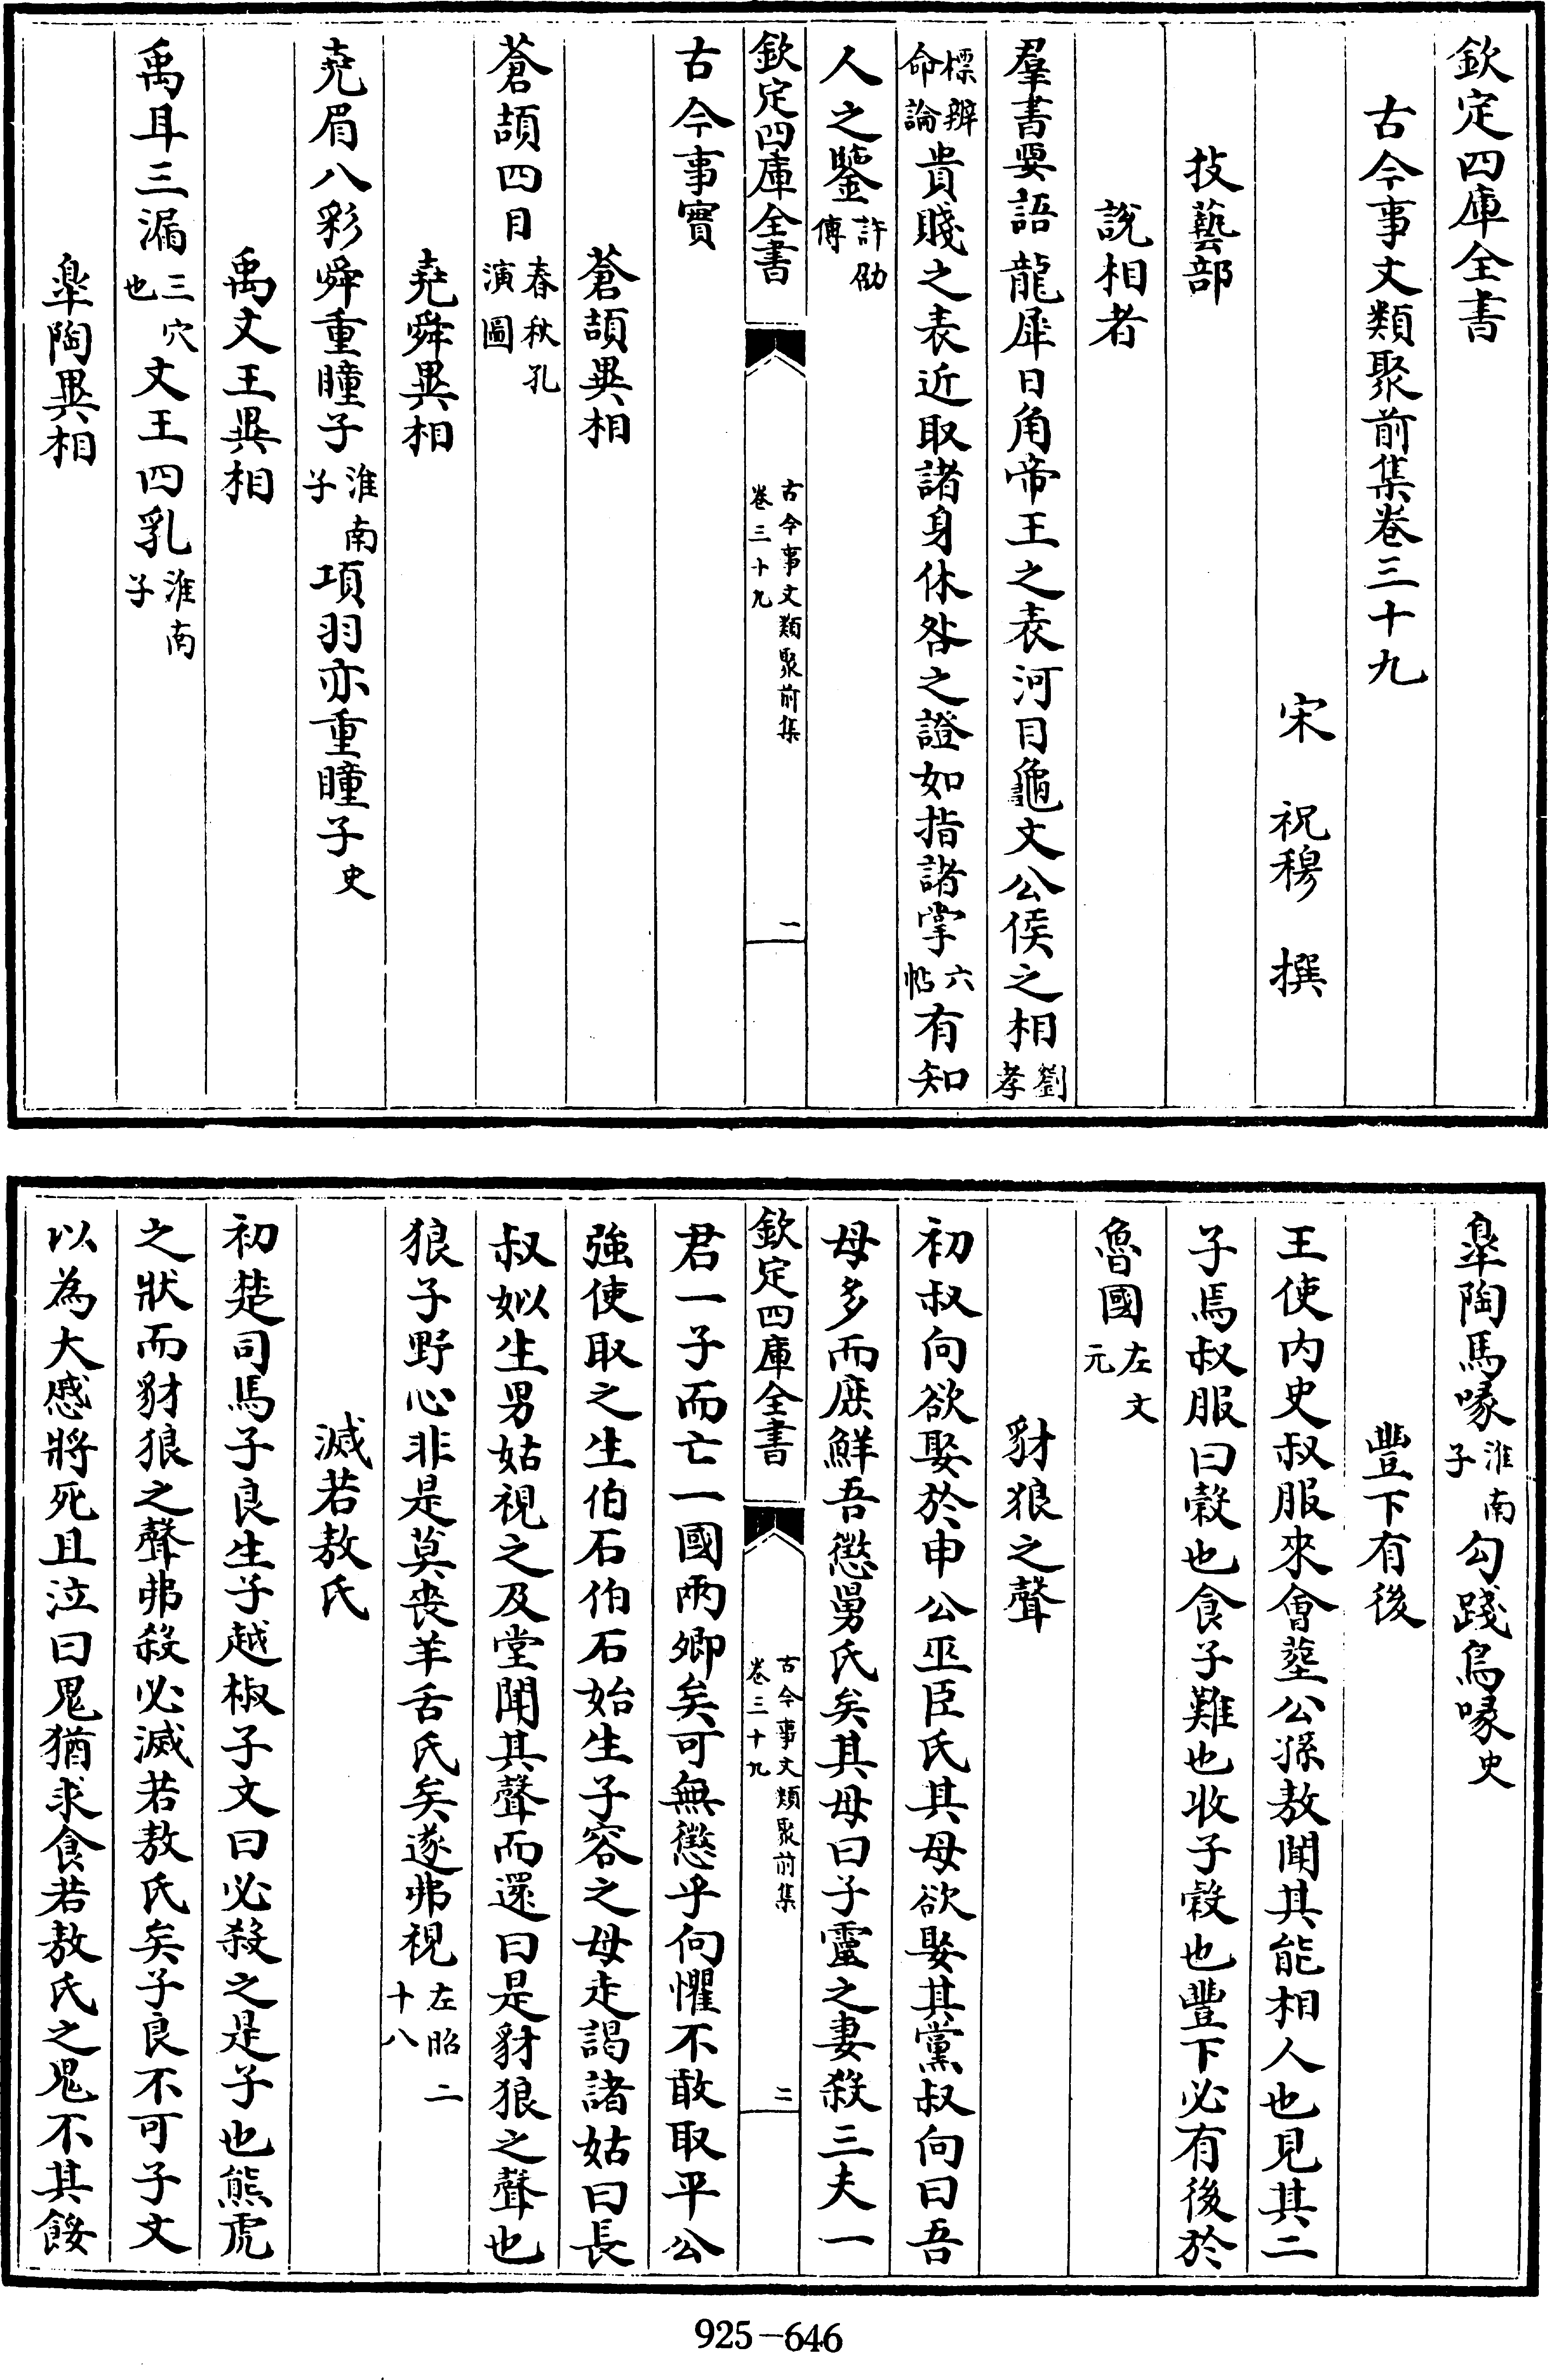 欽定四庫全書
古今事文類聚前集卷三十九
宋　祝穆　撰
技藝部
説相者
羣書要語龍犀日角帝王之表河目龜文公侯之相劉孝
標辨命論貴賤之表近取諸身休咎之證如指諸掌六帖有知
人之鑒許劭傳
欽定四庫全書
古今事文類聚前集
卷三十九
一
古今事實
蒼頡異相
蒼頡四目春秋孔演圖
堯舜異相
堯眉八彩舜重瞳子淮南子項羽亦重瞳子史
禹文王異相
禹耳三漏三穴也文王四乳淮南子
臯陶異相
臯陶馬喙淮南子勾踐鳥喙史
豐下有後
王使内史叔服來會塟公孫敖聞其能相人也見其二
子焉叔服曰榖也食子難也收子榖也豐下必有後於
魯國左文元
豺狼之聲
初叔向欲娶於申公巫臣氏其母欲娶其黨叔向曰吾
母多而庶鮮吾懲舅氏矣其母曰子靈之妻殺三夫一
欽定四庫全書
古今事文類聚前集
卷三十九
二
君一子而亡一國兩卿矣可無懲乎向懼不敢取平公
強使取之生伯石伯石始生子容之母走謁諸姑曰長
叔姒生男姑視之及堂聞其聲而還曰是豺狼之聲也
狼子野心非是莫喪羊舌氏矣遂弗視左昭二十八
滅若敖氏
初楚司馬子良生子越椒子文曰必殺之是子也熊虎
之狀而豺狼之聲弗殺必滅若敖氏矣子良不可子文
以為大慼將死且泣曰鬼猶求食若敖氏之鬼不其餒
925－646